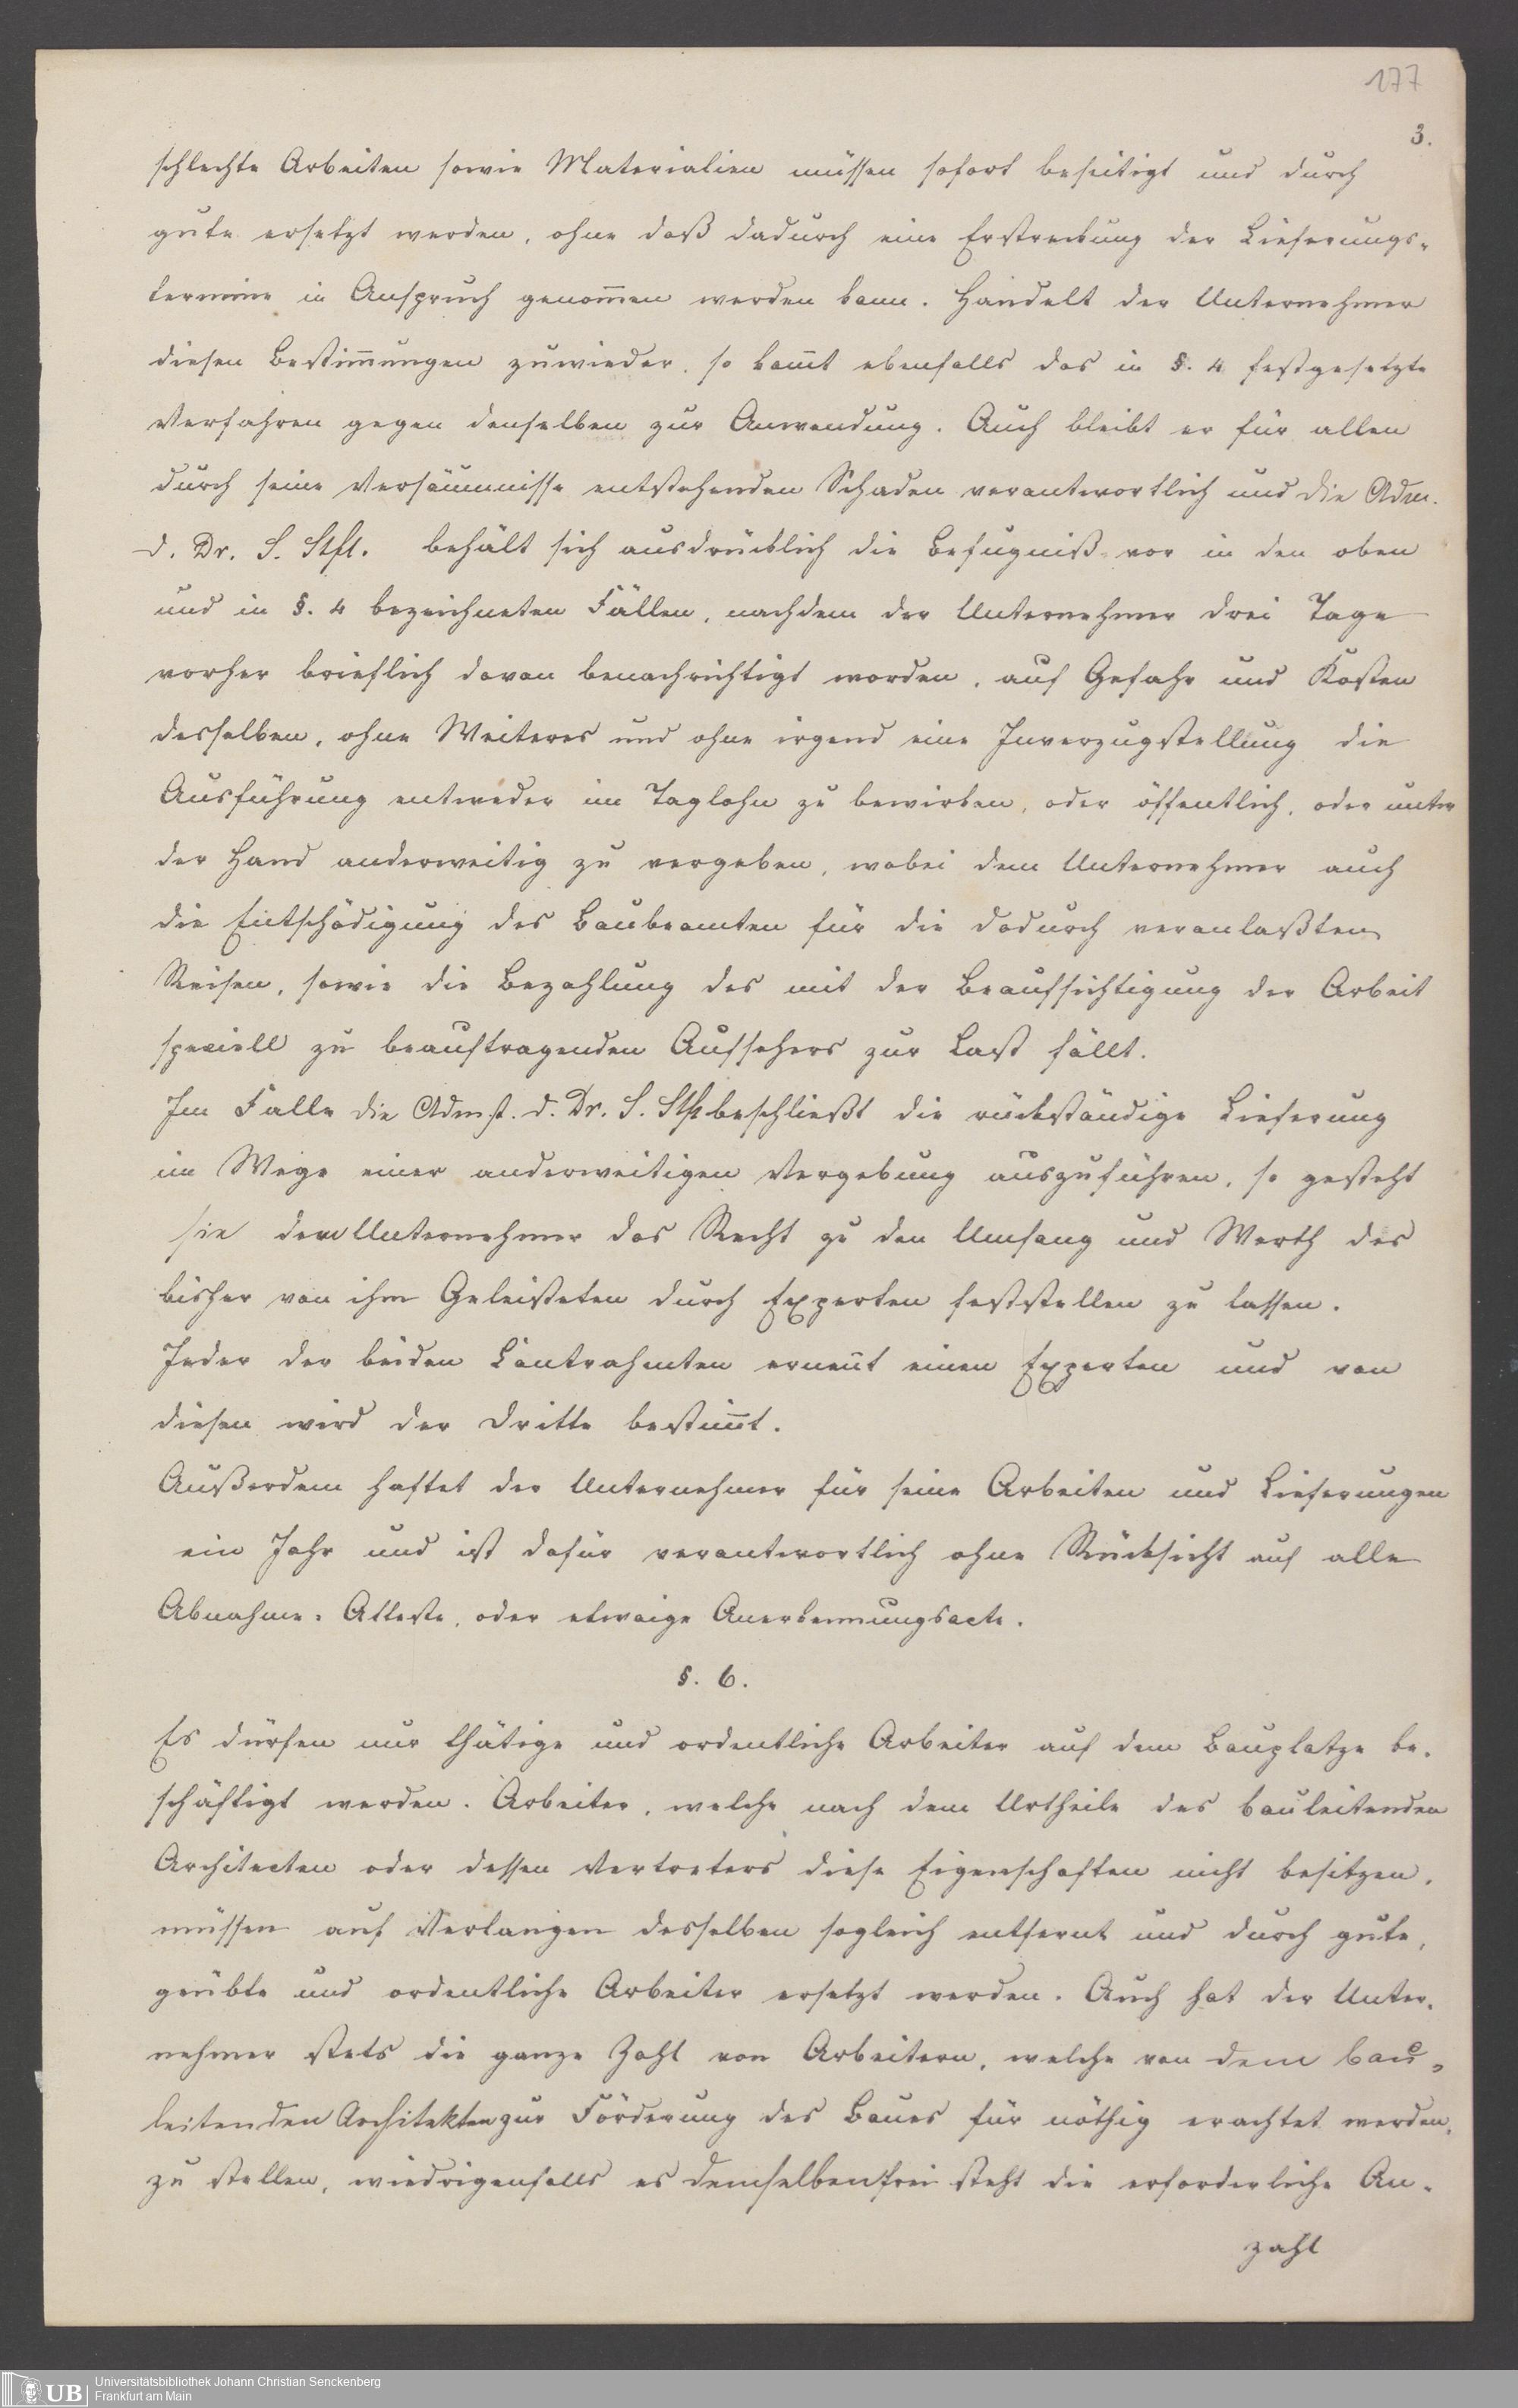 177
3.
schlechte Arbeiten sowie Materialien müssen sofort beseitigt und durch
gute ersetzt werden, ohne daß dadurch eine Erstreckung der Lieferungs-
termine in Anspruch genom̄en werden kann. Handelt der Unternehmer
diesen Bestim̄ungen zuwieder, so kom̄t ebenfalls das in §. 4 festgesetzte
Verfahren gegen denselben zur Anwendung. Auch bleibt er für allen
durch seine Versäumnisse entstehenden Schaden verantwortlich und die Adm.
d. Dr. S. Stft. behält sich ausdrücklich die Befugniß vor in den oben
und in §. 4 bezeichneten Fällen, nachdem der Unternehmer drei Tage
vorher brieflich davon benachrichtigt worden, auf Gefahr und Kosten
desselben, ohne Weiteres und ohne irgend eine Inverzugstellung die
Ausführung entweder im Taglohn zu bewirken, oder öffentlich, oder unter
der Hand anderweitig zu vergeben, wobei dem Unternehmer auch
die Entschädigung des Baubeamten für die dadurch veranlaßten
Reisen, sowie die Bezahlung des mit der Beaufsichtigung der Arbeit
speciell zu beauftragenden Aufsehers zur Last fällt.
Im Falle die Admst. d. Dr. S. Stft beschließt die rückständige Lieferung
im Wege einer anderweitigen Vergebung auszuführen, so gesteht
sie dem Unternehmer das Recht zu den Umfang und Werth des
bisher von ihm Geleisteten durch Experten feststellen zu lassen.
Jeder der beiden Contrahenten ernen̄t einen Experten und von
diesen wird der Dritte bestim̄t.
Außerdem haftet der Unternehmer für seine Arbeiten und Lieferungen
ein Jahr und ist dafür verantwortlich ohne Rücksicht auf alle
Abnahme-Atteste, oder etwaige Anerkennungsacte.
§. 6.
Es dürfen nur thätige und ordentliche Arbeiter auf dem Bauplatze be-
schäftigt werden. Arbeiter, welche nach dem Urtheile des bauleitenden
Architecten oder dessen Vertreters diese Eigenschaften nicht besitzen,
müssen auf Verlangen desselben sogleich entfernt und durch gute,
geübte und ordentliche Arbeiter ersetzt werden. Auch hat der Unter-
nehmer stets die ganze Zahl von Arbeitern, welche von dem bau-
leitenden Architekten zur Förderung des Baues für nöthig erachtet werden,
zu stellen, wiedrigenfalls es demselben frei steht die erforderliche An-
zahl
UB Universitätsbibliothek Johann Christian Senckenberg
Frankfurt am Main